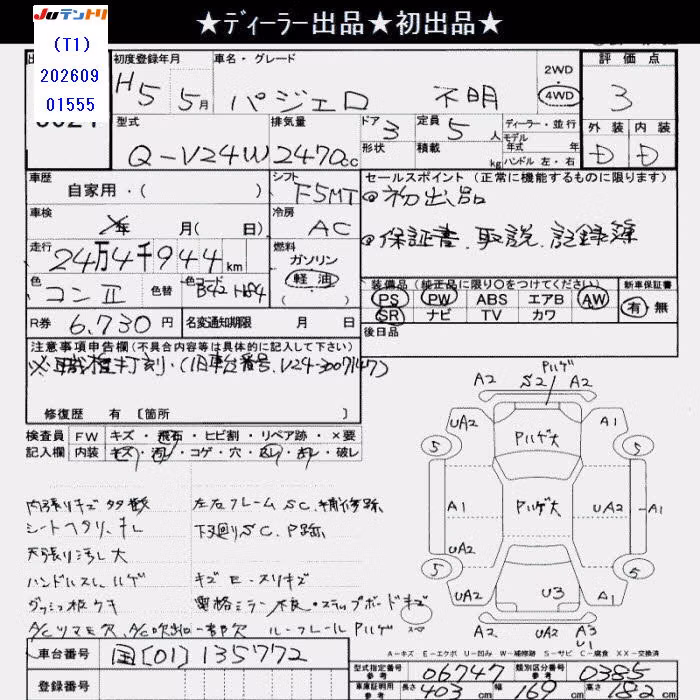 JUテントリ ★ディーラー出品★初出品★
(T1)
202609
01555
初度登録年月 車名・グレード 2WD 評価点
H5 5月 パジェロ 不明 4WD 3
型式 排気量 ドア 3 定員 5 人 ディーラー・並行 外装 内装
モデル 年式 年
Q-V24W 2470cc 形状 積載 kg ハンドル 左・右 D D
車歴 シフト セールスポイント(正常に機能するものに限ります)
自家用・( ) F5MT ◎初出品
車検 冷房
年 月(日) AC ◎保証書、取説、記録簿
走行 燃料
24万4千944km ガソリン
色 色替 色コード 軽油 装備品(純正品に限り○をつけてください) 新車保証書
コンⅡ ( ) PS PW ABS エアB AW 有・無
R券 6,730円 名変通知期限 月 日 SR ナビ TV カワ
後日品
注意事項申告欄(不具合内容等は具体的に記入して下さい)
※職権打刻・(旧車台番号、V24-3007147)
修復歴 有 〔箇所 〕
検査員 FW キズ・飛石・ヒビ割・リペア跡・×要
記入欄 内装 キズ・汚レ・コゲ・穴・破レ
内張りキズ多数 左右フレームSC、補修跡
シートヘタリ、キレ 下廻りSC、P跡
天張り汚レ大
ハンドルスレ、ハゲ キズE・スリキズ
ダッシュ板ウキ
ルーフレール Pハゲ
Pハゲ
A2 S2 A2
UA2 Pハゲ大 A1
5 5
A1 Pハゲ大 UA2 A1
UA2
5 5
UA2 U3 UA2
A2 UA2 A3
U1
A-キズ E-エクボ U-凹み W-補修跡 S-サビ C-腐食 XX-交換済
車台番号 国[01]135772
登録番号
型式指定番号 参考 06747 類別区分番号 参考 0385
車庫証明用 参考 長さ 403 cm 幅 169 cm 高さ 182 cm